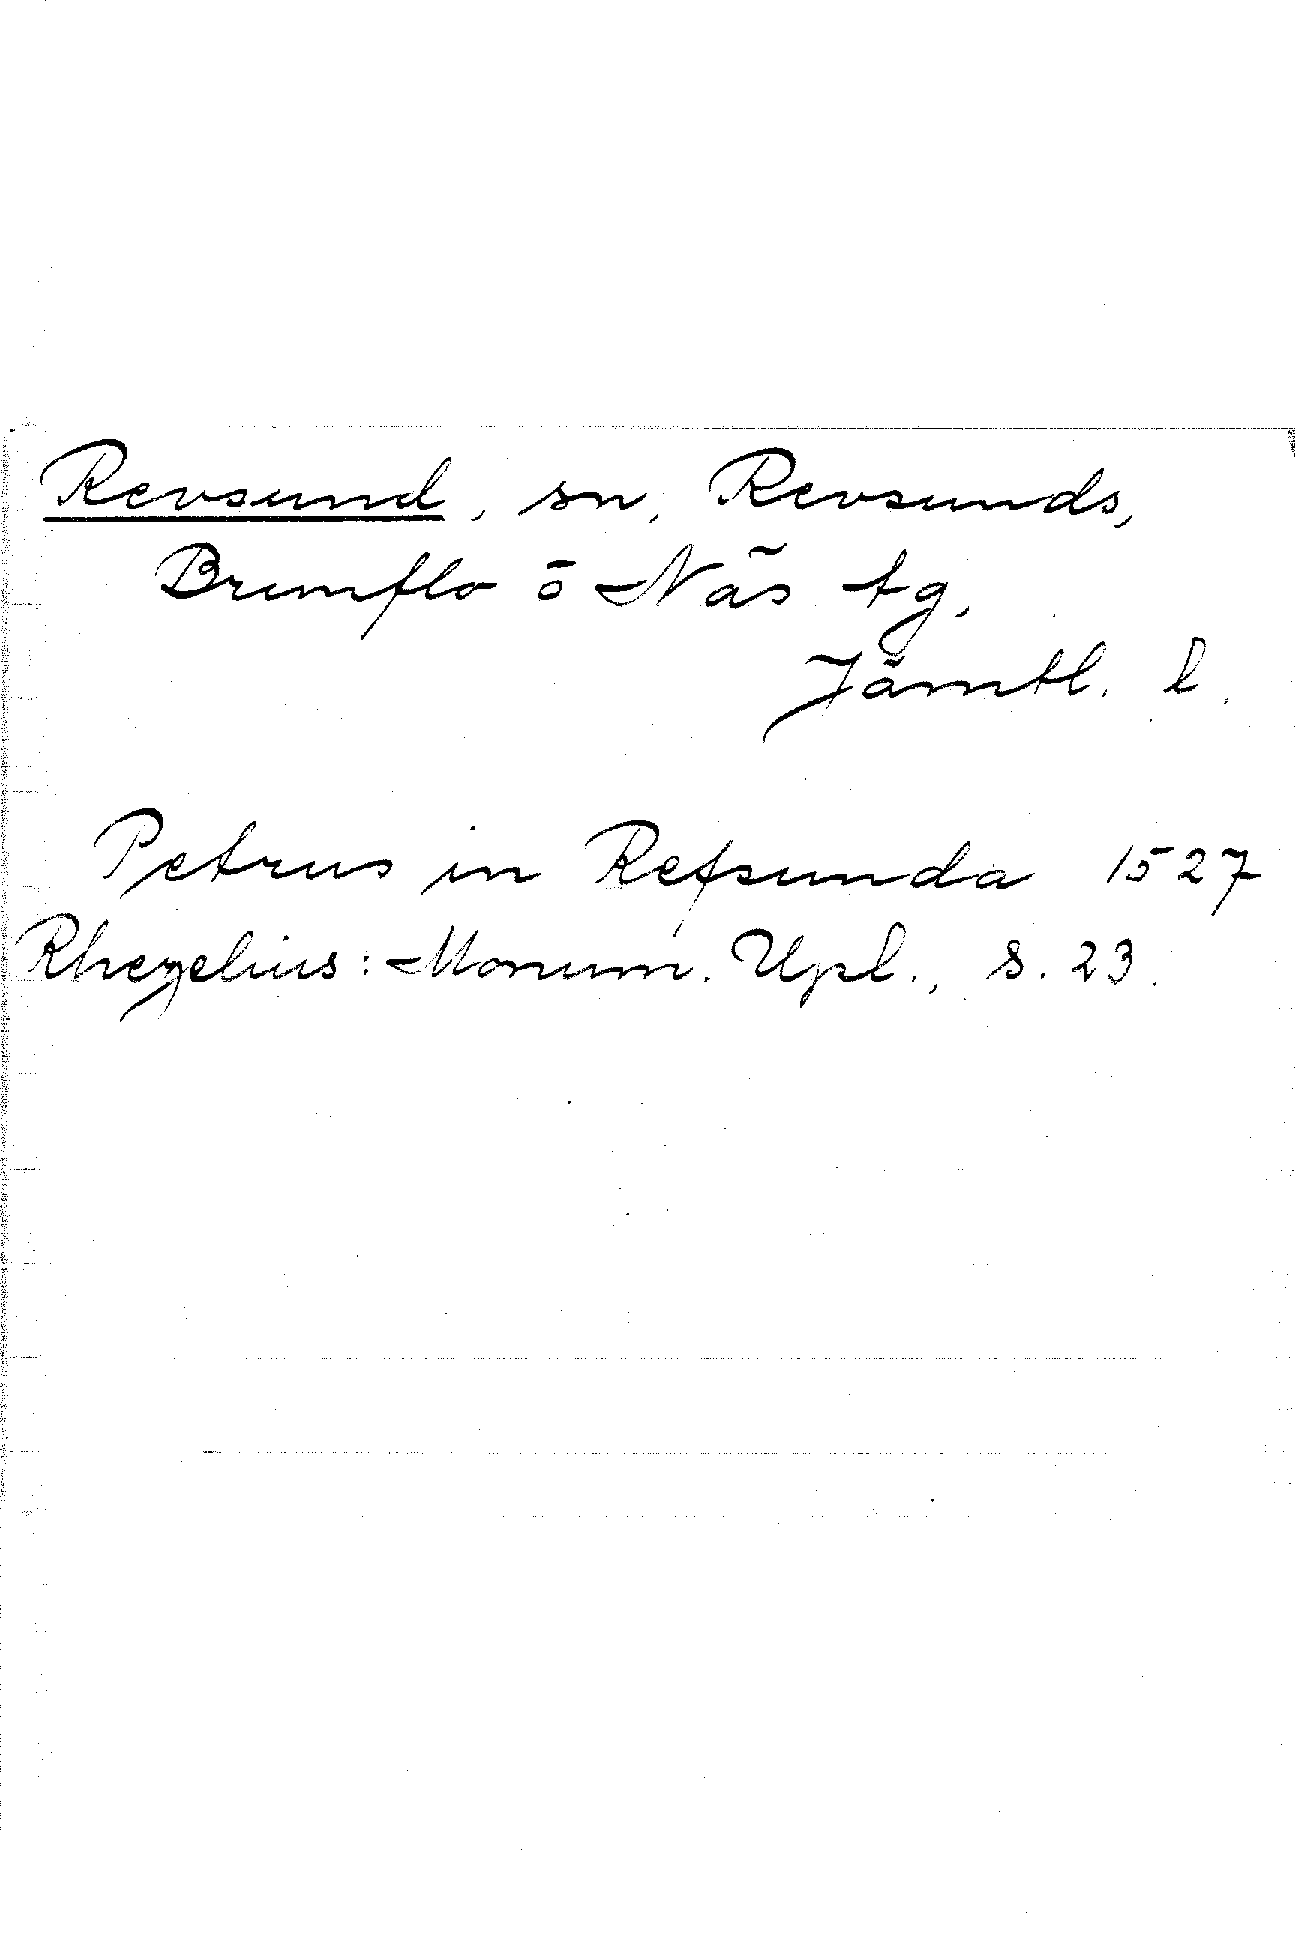 Revsund, sn, Revsunds,
Brunflo ö Näs tg,
Jämtl. l.
Petrus in Refsunda 1527
Rhezelius: Monum. Upl., s. 23.